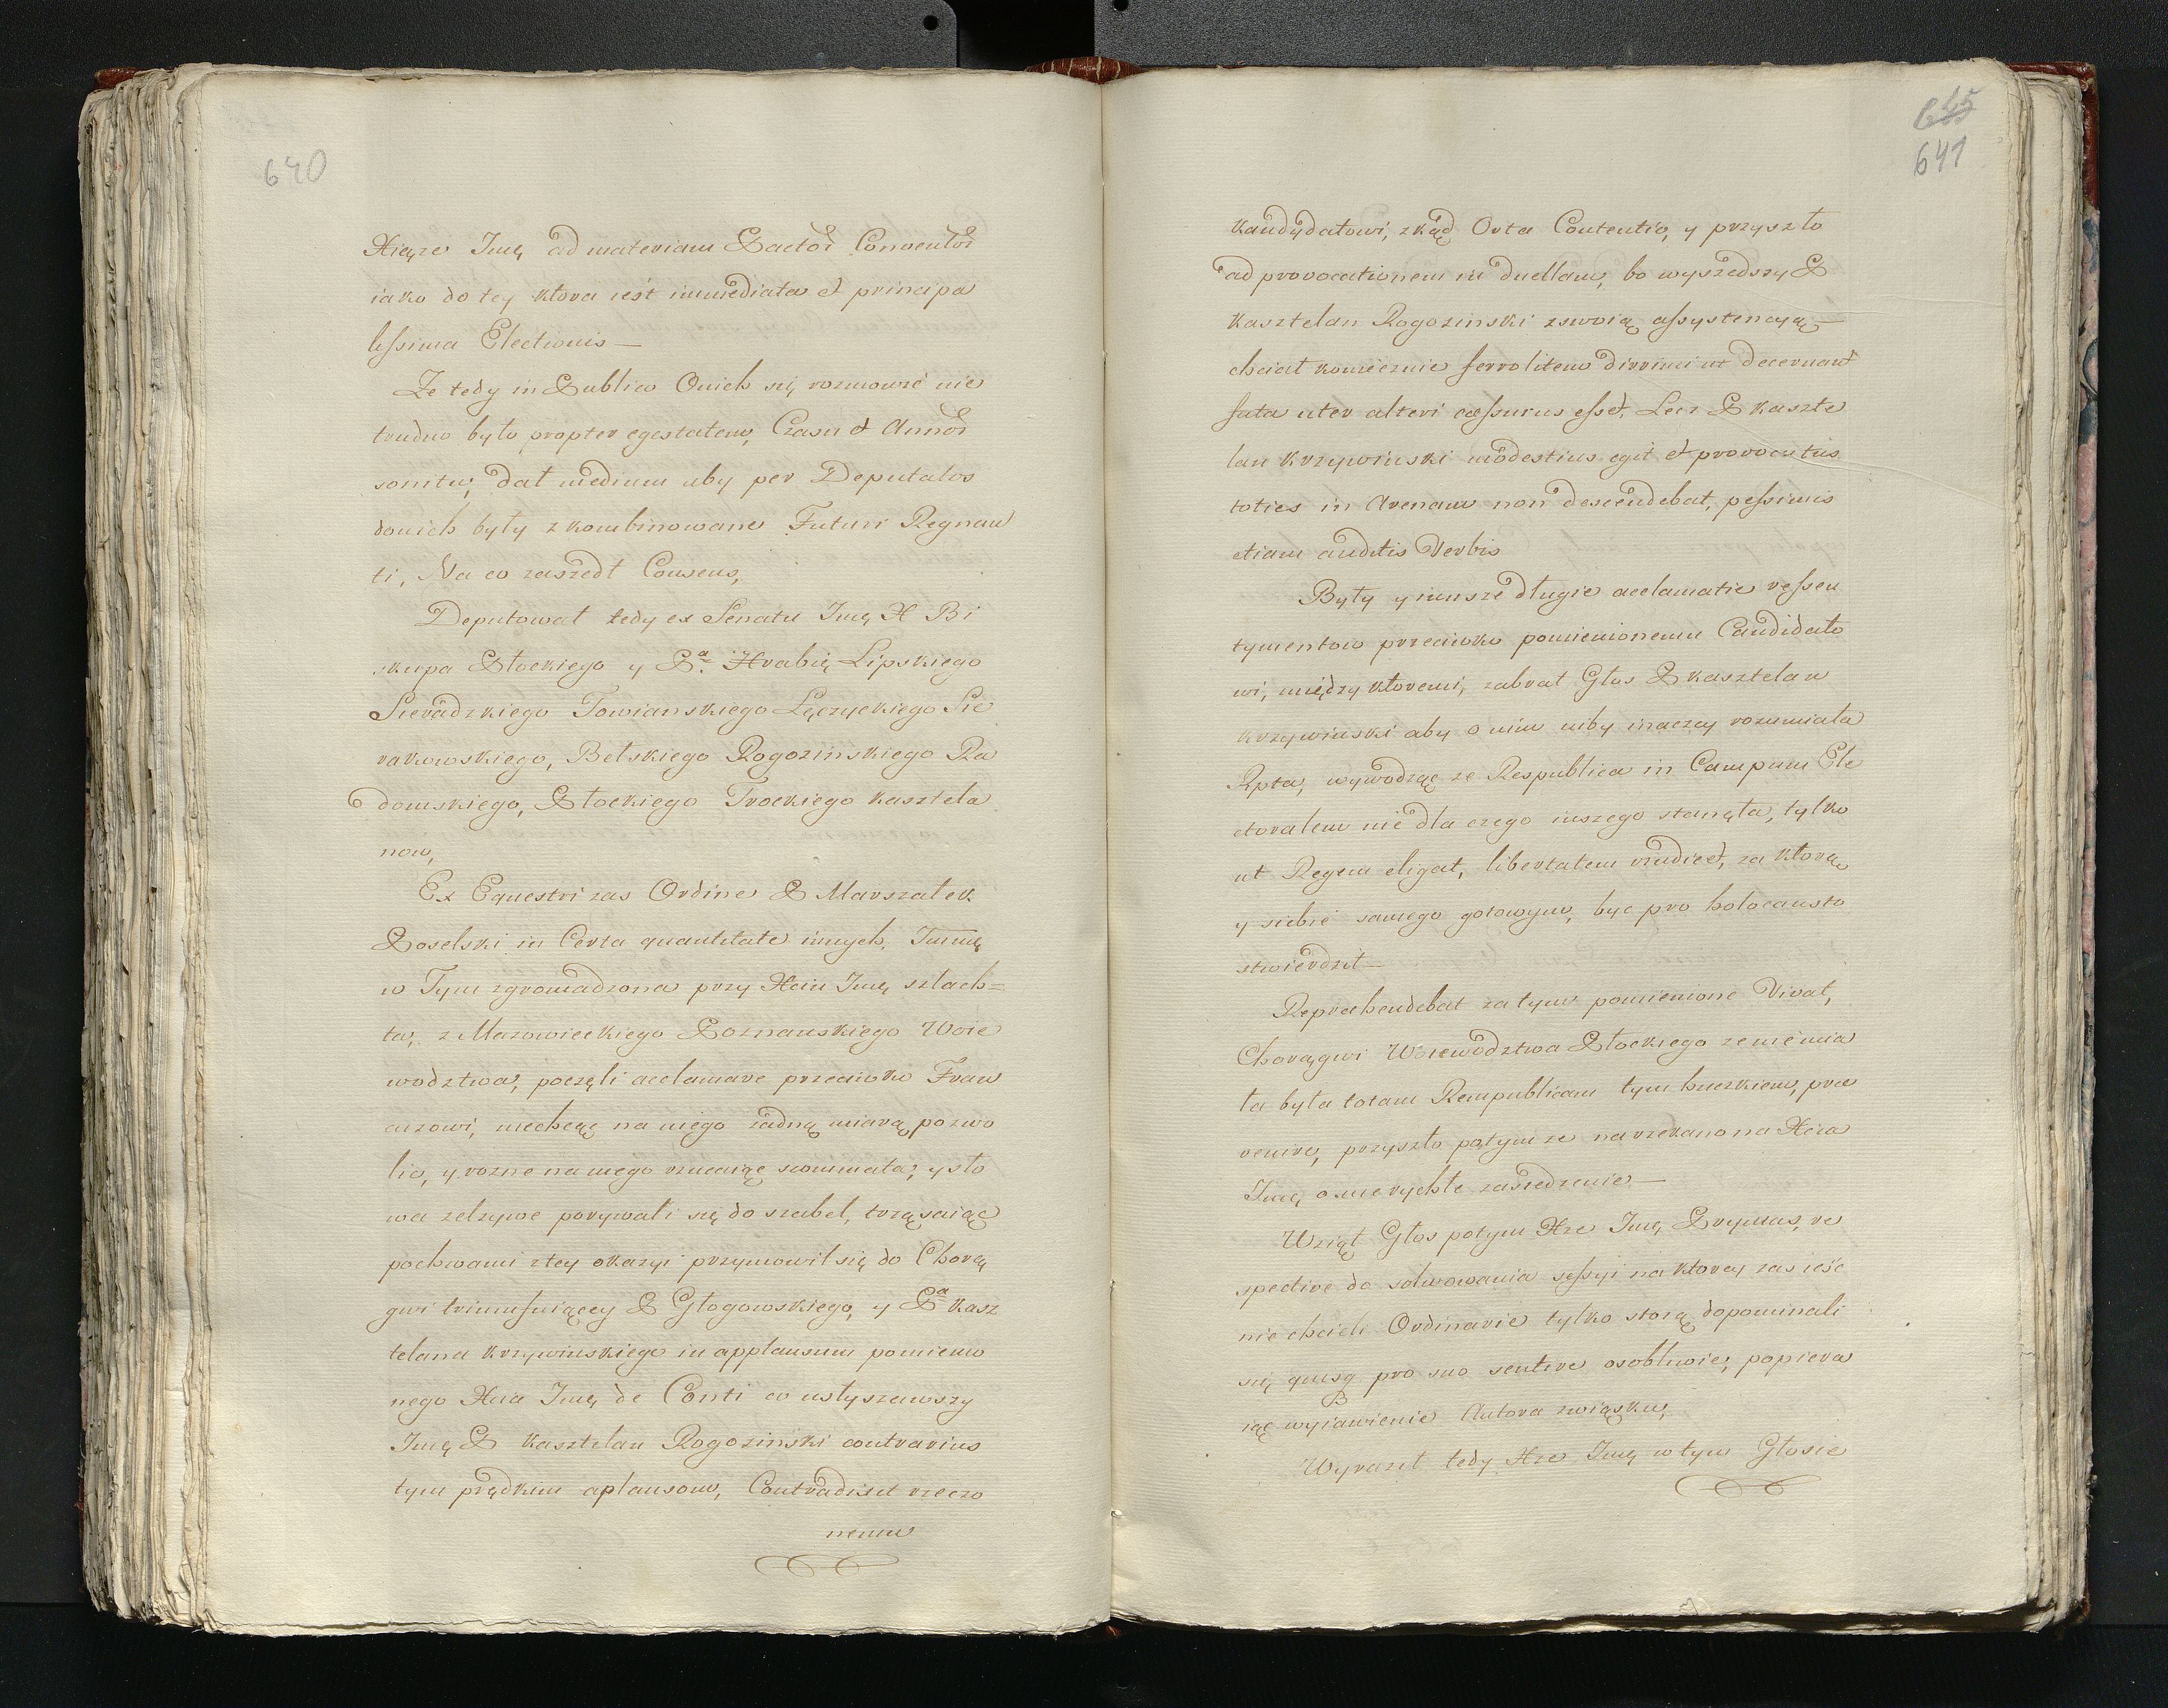 640
Xiąze Imę ad materiam Pactor Conventor
iako do tey ktora iest immediata et principa
lissima Electionis —
Ze tedy in Publico Onich się rozmowić nie
trudno było propter egestatem, Czasu et Armor
sonitu, dał medium aby per Deputatos
donich były z kombinowane Futuri Regnan
ti, Na co zaszedł Consens,
Deputował tedy ex Senatu Imę X Bi
skupa Płockiego y Pa Hrabię Lipskiego
Sieradzkiego Towianskiego Łęczyckiego Sie
rakowskiego, Bełskiego Rogozinskiego Ra
domskiego, Płockiego Trockiego kasztela
now,
Ex Equestri zas Ordine P Marszałek
Poselski in Certa quantitate innych. Tumę
w Tym zgromadzona przy Xciu Imę szlach=
ta, z Mazowieckiego Poznanskiego Woie
wodztwa, poczęli acclamare przeciwko Fran
cuzowi, niechcąc na niego żadną miarą pozwo
lic, y rozne na niego rzucaiąc scommata, y sło
wa zelzywe porywali się do szabel, trząsaiąc
pochwami z tey okazyi przymowił się do Chorą
gwi triumfuiącey P Głogowskiego, y Pa kasz
telana krzywinskiego in applausum pomienio
nego Xcia Imę de Conti co usłyszawszy
Imę P kasztelan Rogozinski contrarius
tym prędkim aplausom, Contradixit rzeczo
nemu
645
641
kandydatowi, zkąd Orta Contentio, y przyszło
ad provocationem in duellam, bo wyszedszy P
kasztelan Rogozinski zswoią assystencyą —
chciał koniecznie ferro litem dirrimi ut decernant
fata uter alteri cessurus esset, Lecz P kaszte
lan krzywinski modestius egit et provocatus
toties in Arenam non descendebat, pessimis
etiam auditis Verbis
Były y insze długie acclamatie ressen
tymentow przeciwko pomienionemu Candidato
wi, między ktoremi, zabrał Głos P kasztelan
krzywinski aby o nim niby inaczey rozumiała
Rpta, wywodząc ze Respublica in Campum Ele
ctoralem nie dla czego inszego stanęła, tylko
ut Regem eligat, libertatem vindicet, za ktorą
y siebie samego gotowym, byc pro holocausto
stwierdził —
Reprahendebat zatym pomienione Vivat,
Chorągwi Woiewodztwa Płockiego ze nie mia
ła była totam Rempublicam tym huczkiem, prae
venire, przyszło potym ze narzekano na Xcia
Imę o nierychłe zasiedzenie —
Wziął Głos potym Xze Imę Prymas, re
spective do solwowania sessyi na ktorey zas ieść
nie chcieli Ordinarie tylko stoią dopominali
się quisq pro suo sentire osobliwie, popiera
iąc wyiawienie Autora związku,
Wyraził tedy Xze Imę w tym Głosie